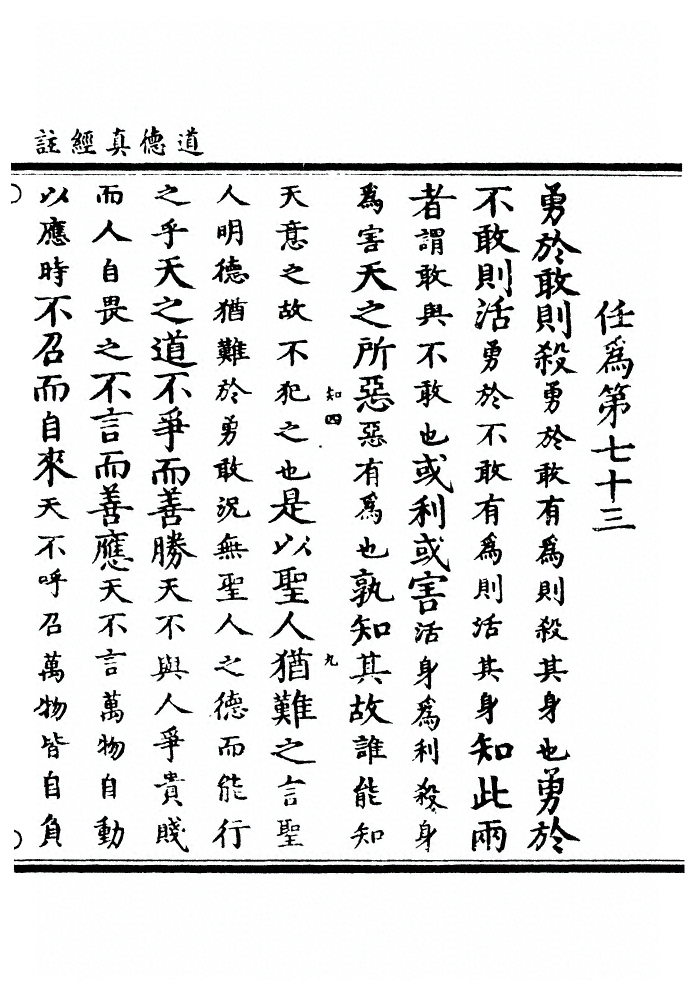 道德真經註
任爲第七十三
勇於敢則殺勇於敢有爲則殺其身也勇於
不敢則活勇於不敢有爲則活其身知此兩
者謂敢與不敢也或利或害活身爲利殺身
爲害天之所惡惡有爲也孰知其故誰能知
知四
九
天意之故不犯之也是以聖人猶難之言聖
人明德猶難於勇敢況無聖人之德而能行
之乎天之道不爭而善勝天不與人爭貴賤
而人自畏之不言而善應天不言萬物自動
以應時不召而自來天不呼召萬物皆自負